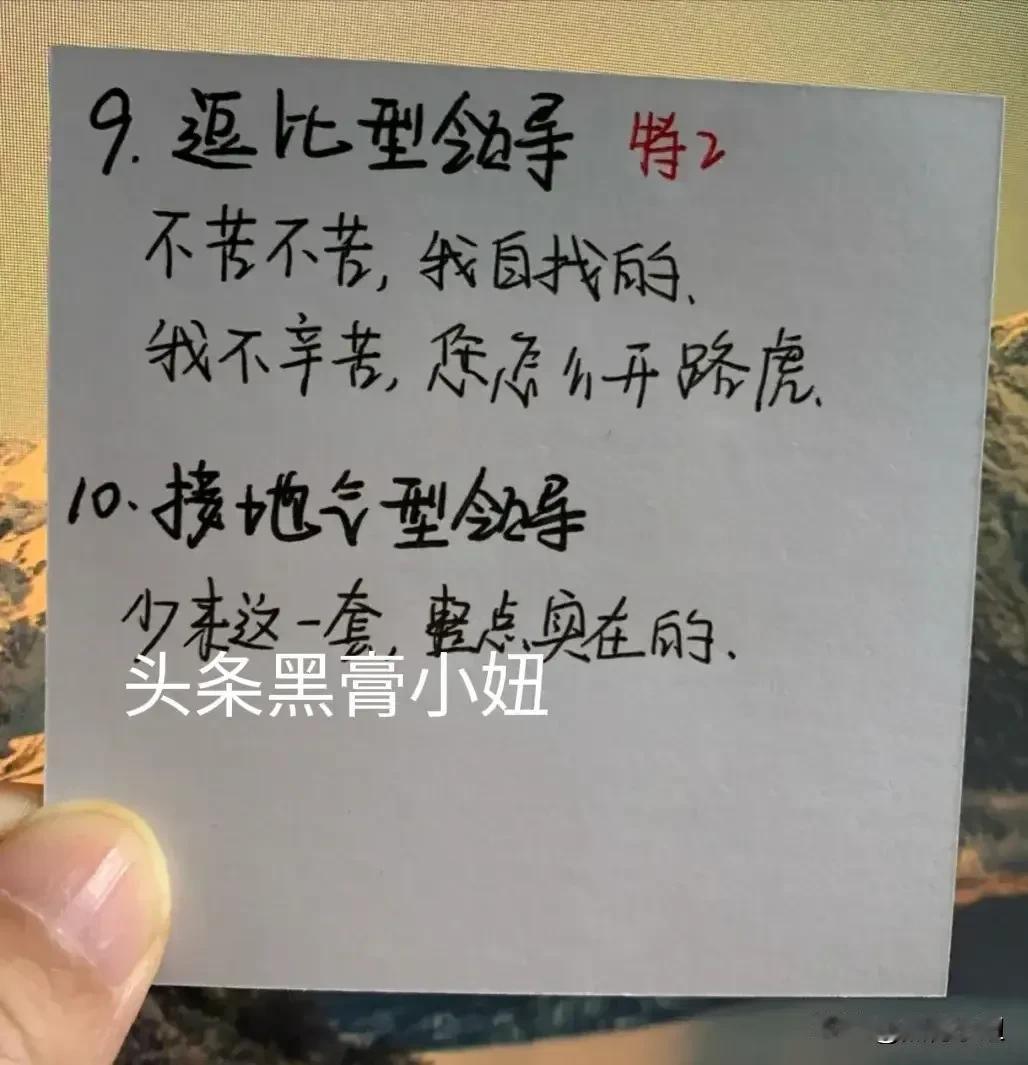 9. 逗比型领导 特2
不苦不苦, 我自找的.
我不辛苦, 您怎么开路虎.
10. 接地气型领导
少来这一套, 整点实在的.
头条黑膏小妞